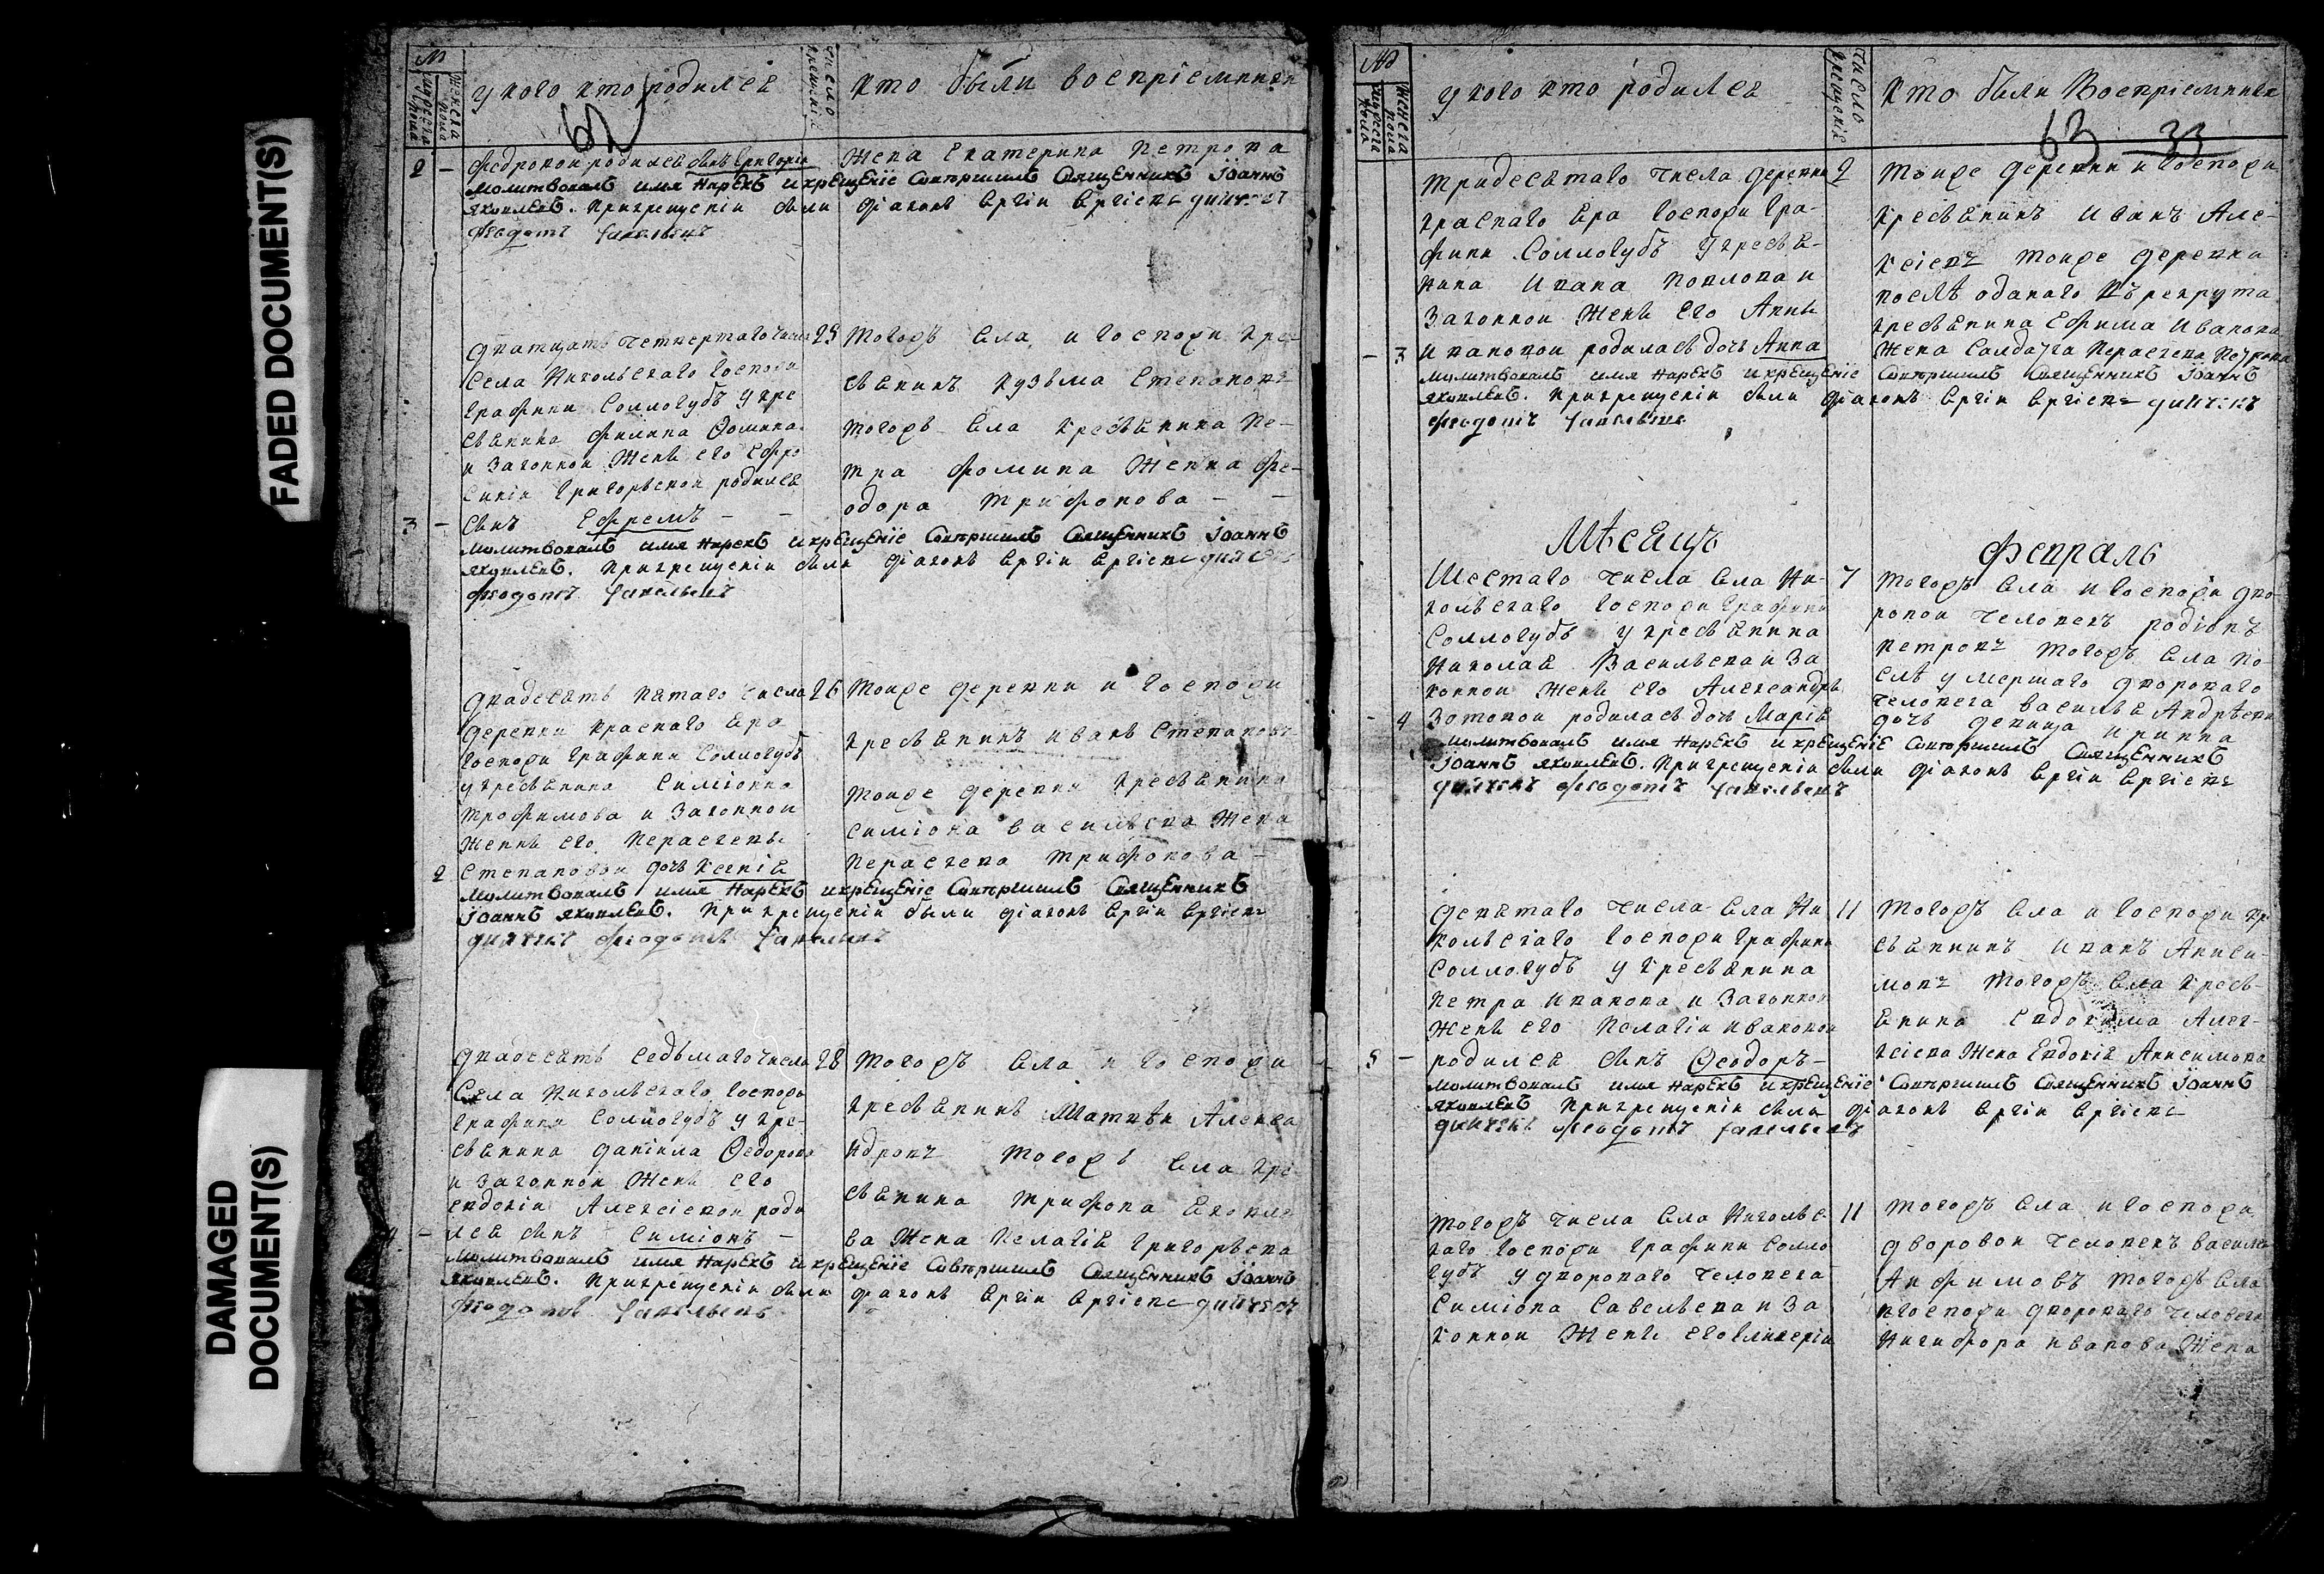 FADED DOCUMENT(S)
DAMAGED
DOCUMENT(S)
№
Мужеска пола
Женска пола
у кого кто родился
62
Число крещенія
кто были воспріемники
2 –
Федоровой родился сынъ Григорій
молитвовалъ имя нарекъ и крещеніе совершилъ священникъ Іоаннъ
Яковлевъ. При крещеніи были діаконъ Сргіи Сргіевъ дьячекъ
Феодотъ Савельевъ
Жена Екатерина Петрова
дватцать четвертаго числа 25
Села Никольскаго Госпожи
Графини Соллогубъ у кре
стьянина Филипа Фомина
и Законной Жены его Ефро
синіи Григорьевой родился
3 – сынъ Ефремъ –
молитвовалъ имя нарекъ и крещеніе совершилъ священникъ Іоаннъ
Яковлевъ. При крещеніи были діаконъ Сргіи Сргіевъ
Феодотъ Савельевъ
Тогожъ Села и Госпожи кре-
стьянинъ Кузьма Степановъ
тогожъ Села крестьянина Пе-
тра Фомина Женка Фе-
одора Трифонова –
дватцать пятаго числа 26
деревни Краснаго Яра
Госпожи Графини Соллогубъ
у крестьянина Симіонна
Трофимова и Законной
Женны его Параскевы
2 Степановой дочь Ксенія
молитвовалъ имя нарекъ и крещеніе совершилъ священникъ
Іоаннъ Яковлевъ. При крещеніи были діаконъ Сргіи Сргіевъ
дьячекъ Феодотъ Савельевъ
Тоижъ деревни и Госпожи
крестьянинъ Иванъ Степановъ
тоиже деревни крестьянина
Симіона Васильева Жена
Параскева Трифонова –
дватцать седьмаго числа 28
Села Никольскаго Госпожи
Графини Соллогубъ у кре-
стьянина Даніила Ѳедорова
и Законной Жены его
Евдокіи Алексіевой роди
4 – лся сынъ Симіонъ –
молитвовалъ имя нарекъ и крещеніе совершилъ священникъ Іоаннъ
Яковлевъ. При крещеніи были діаконъ Сргіи Сргіевъ дьячекъ
Феодотъ Савельевъ
Тогожъ Села и Госпожи
крестьянинъ Матвѣи Алекса
ндровъ тогожъ Села кре
стьянина Трифона Яковле
ва Жена Пелагія Григорьева
№
Мужеска пола
Женска пола
у кого кто родился
Число крещенія
Кто были Воспріемники
63 33
тридесятаго числа деревни 2
Краснаго Яра Госпожи Гра-
фини Соллогубъ у крестья-
нина Ивана Павлова и
Законной Жены его Анны
– 3 Ивановой родилась дочь Анна
молитвовалъ имя нарекъ и крещеніе совершилъ священникъ Іоаннъ
Яковлевъ. При крещеніи были діаконъ Сргіи Сргіевъ дьячекъ
Феодотъ Савельевъ
Тоиже деревни и Госпожи
крестьянинъ Иванъ Але-
ксіевъ тоиже деревни
послѣ отданаго въ рекрута
крестьянина Ефима Иванова
Жена Салдатка Параскева Петрова
Мѣсяцъ Февраль
Шестаго числа Села Ни- 7
кольскаго Госпожи Графини
Соллогубъ у крестьянина
Николая Васильева и За
конной Жены его Александры
– 4 Зотовой родилась дочь Марія
молитвовалъ имя нарекъ и крещеніе совершилъ священникъ
Іоаннъ Яковлевъ. При крещеніи были діаконъ Сргіи Сргіевъ
дьячекъ Феодотъ Савельевъ
Тогожъ Села и Госпожи дво-
ровой человекъ Родіонъ
Петровъ тогожъ Села по-
слѣ умершаго двороваго
человека Василья Андрѣева
дочь девица Ирина
девятаго числа Села Ни 11
кольскаго Госпожи Графини
Соллогубъ у крестьянина
Петра Иванова и Законной
Жены его Пелагіи Ивановой
5 – родился сынъ Ѳеодоръ –
молитвовалъ имя нарекъ и крещеніе совершилъ священникъ Іоаннъ
Яковлевъ При крещеніи были діаконъ Сргіи Сргіевъ
дьячекъ Феодотъ Савельевъ
Тогожъ Села и Госпожи кре
стьянинъ Иванъ Аниси-
мовъ тогожъ Села кресть-
янина Евдокима Алек-
сіева Жена Евдокія Анисимова
тогожъ числа Села Никольс- 11
каго Госпожи Графини Солло
губъ у двороваго человека
Симіона Савельева и За
конной Жены его Гликеріи
Тогожъ Села и Госпожи
дворовой человекъ Василей
Анфимовъ тогожъ Села
и Госпожи двороваго человека
Никифора Иванова Жена